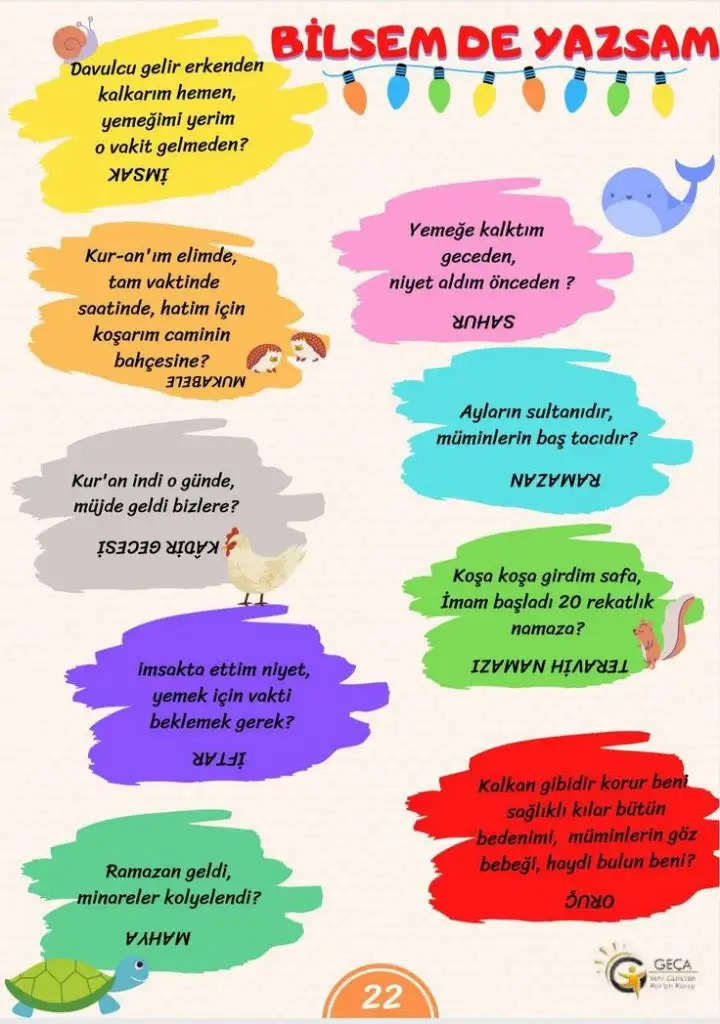 BİLSEM DE YAZSAM
Davulcu gelir erkenden
kalkarım hemen,
yemeğimi yerim
o vakit gelmeden?
İMSAK
Yemeğe kalktım
geceden,
niyet aldım önceden ?
SAHUR
Kur-an'ım elimde,
tam vaktinde
saatinde, hatim için
koşarım caminin
bahçesine?
MUKABELE
Ayların sultanıdır,
müminlerin baş tacıdır?
RAMAZAN
Kur'an indi o günde,
müjde geldi bizlere?
KÂDİR GECESİ
Koşa koşa girdim safa,
İmam başladı 20 rekatlık
namaza?
TERAVİH NAMAZI
imsakta ettim niyet,
yemek için vakti
beklemek gerek?
İFTAR
Kalkan gibidir korur beni
sağlıklı kılar bütün
bedenimi, müminlerin göz
bebeği, haydi bulun beni?
ORUÇ
Ramazan geldi,
minareler kolyelendi?
MAHYA
GEÇA
22